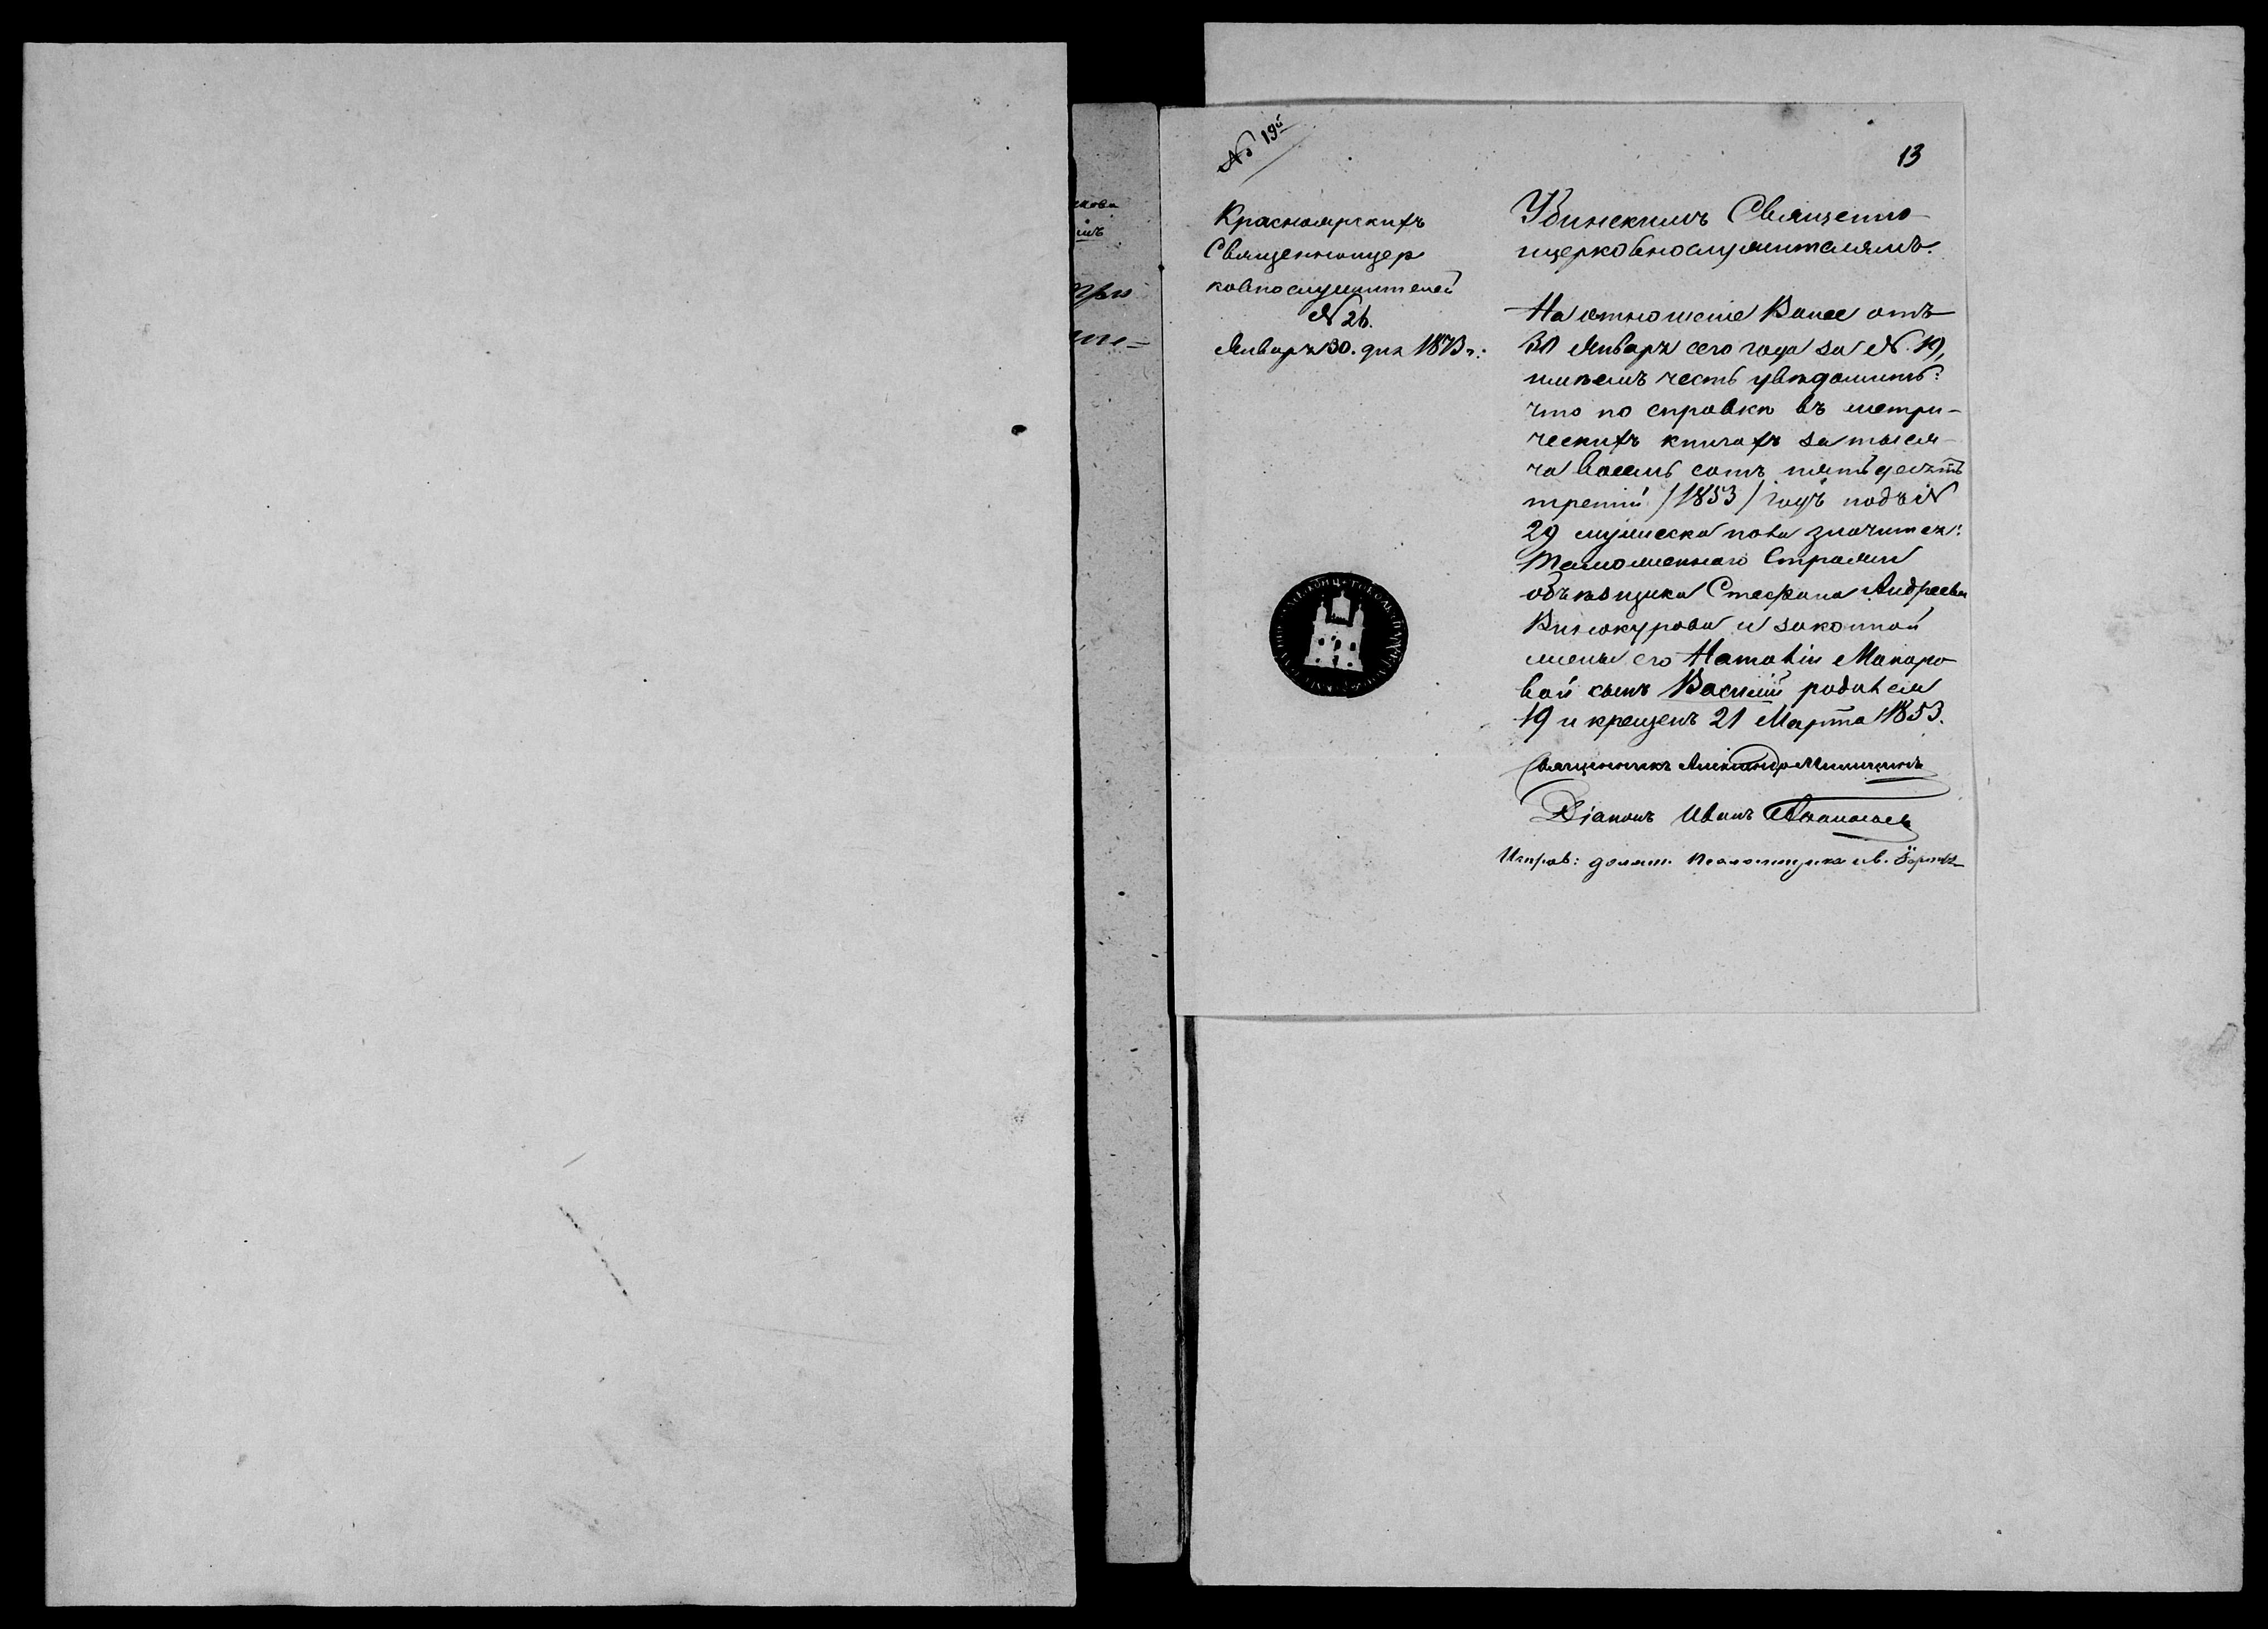 № 19й
13
Красноярскихъ
Священноцер
ковнослужителей
№ 26.
Январь 30. дня 1873 г.:
Убинскимъ Священно-
ицерковнослужителямъ.
На отношеніе Ваше отъ
30 Январь сего года за №. 19,
имѣемъ честь увѣдомить:
что по справкѣ въ метри-
ческихъ книгахъ за тыся-
ча восемь сотъ пятьдесятъ
третій /1853/ годъ подъ №
29 мужеска пола значится:
Таможеннаго Стражи
объѣзщика Стефана Андреева
Винокурова и законной
жены его Наталіи Макаро
вой сынъ Василій родился
19 и крещенъ 21 Марта 1853.
Священникъ Александръ
Діаконъ Иванъ
Исправ: должн. Псаломщика